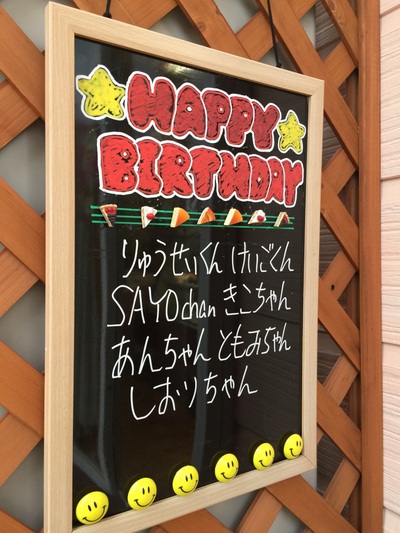 HAPPY
BIRTHDAY
りゅうせいくん けいごくん
SAYOchan きこちゃん
あんちゃん ともみちゃん
しおりちゃん